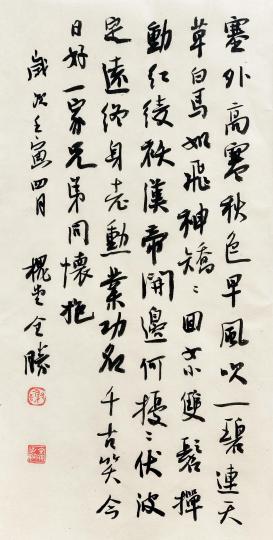 塞外高寒秋色早風吹一碧連天
草白馬如飛神矯〻回女小雙鬟撣
動紅綾袄漢帝開邊何擾〻伏波
定遠終身老勳業功名千古笑今
日好一家兄弟同懷抱
歲次壬寅四月 槐堂全勝